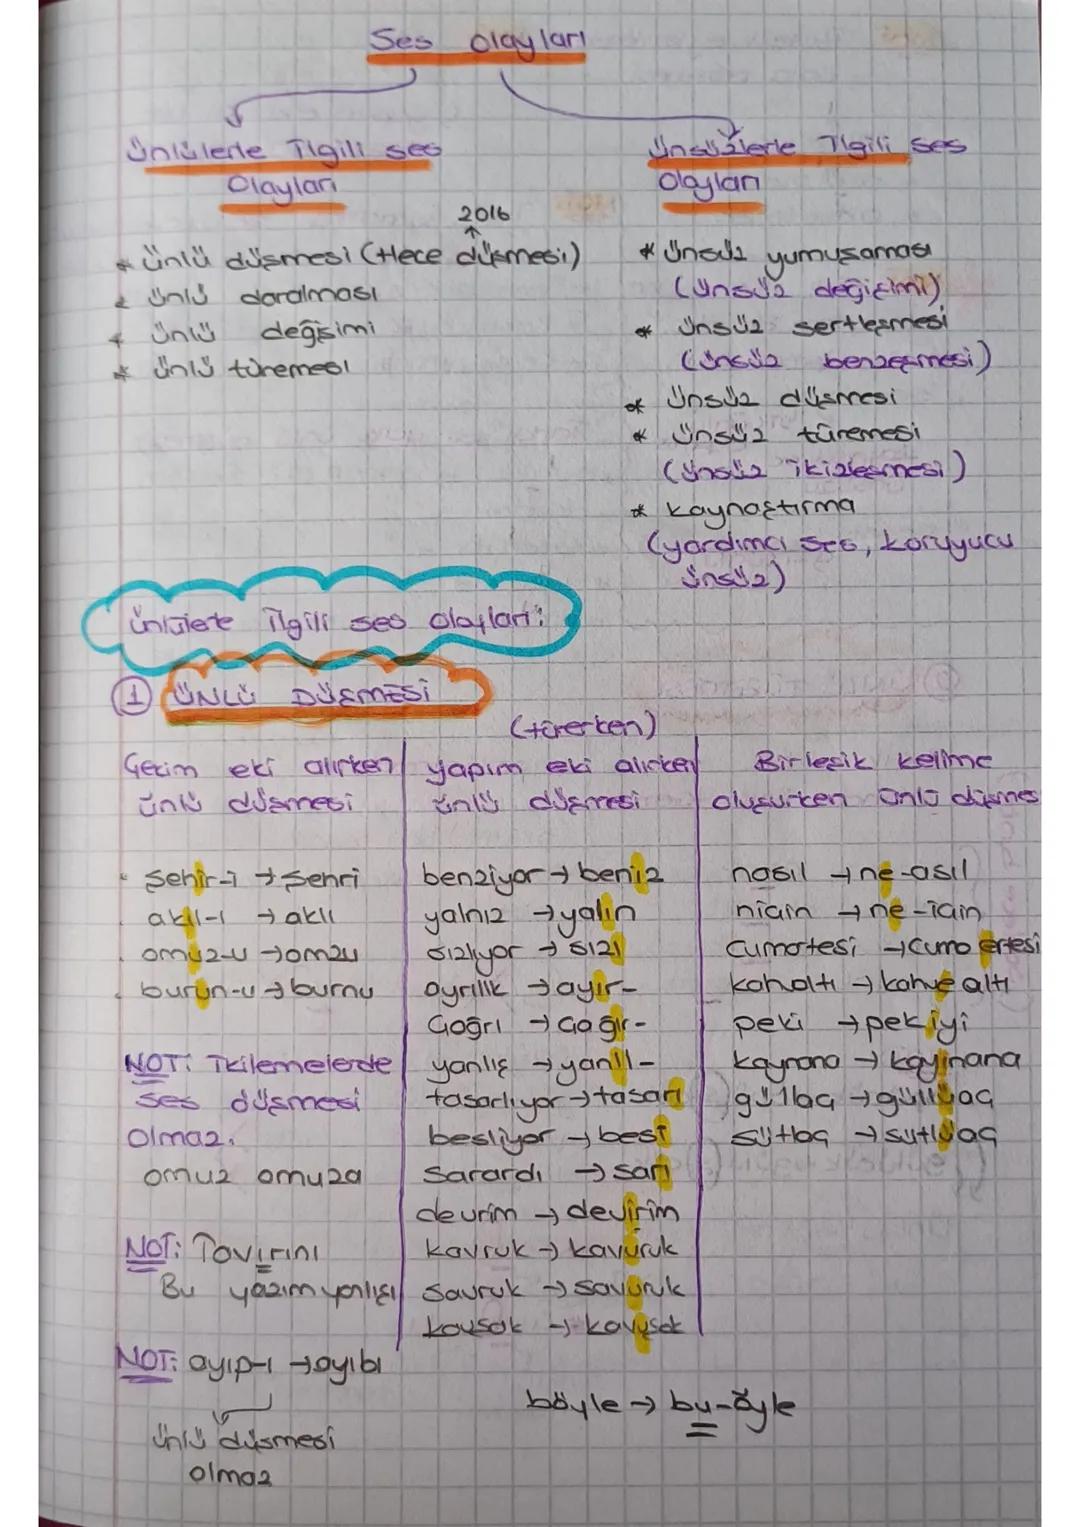 Ses olayları
Ünlülerle İlgili ses
Olayları
Ünsüzlerle İlgili ses
Olayları
2016
* Ünlü düşmesi (Hece düşmesi)
* Ünlü daralması
* Ünlü değişimi
* Ünlü türemesi
* Ünsüz yumuşaması
(Ünsüz değişimi)
* Ünsüz sertleşmesi
(Ünsüz benzeşmesi)
* Ünsüz düşmesi
* Ünsüz türemesi
(Ünsüz ikizleşmesi)
* kaynaştırma
(yardımcı ses, koruyucu
ünsüz)
Ünlülerle İlgili ses olayları:
1 ÜNLÜ DÜŞMESİ
Çekim eki alırken
ünlü düşmesi
şehir-i → şehri
akıl-ı → aklı
omuz-u → omzu
burun-u → burnu
NOT: İkilemelerde
ses düşmesi
olmaz.
omuz omuza
NOT: Tavırını
Bu yazım yanlışı
NOT: ayıp-ı → ayıbı
ünlü düşmesi
olmaz
(türerken)
yapım eki alırken
ünlü düşmesi
benziyor → beniz
yalnız → yalın
sızlıyor → sızı
ayrılık → ayır-
Çağrı → Çağır-
yanlış → yanıl-
tasarlıyor → tasarı
besliyor → besi
Sarardı → sarı
devrim → devirim
kavruk → kavuruk
Savruk → savuruk
kavşak → kavuşak
böyle → bu-öyle
Birleşik kelime
oluşurken ünlü düşmes
nasıl → ne-asıl
niçin → ne-için
cumartesi → cuma ertesi
kahaltı → kahve altı
peki → pek iyi
kaynana → kayınana
güllaç → güllü aç
sütlaç → sütlü aç